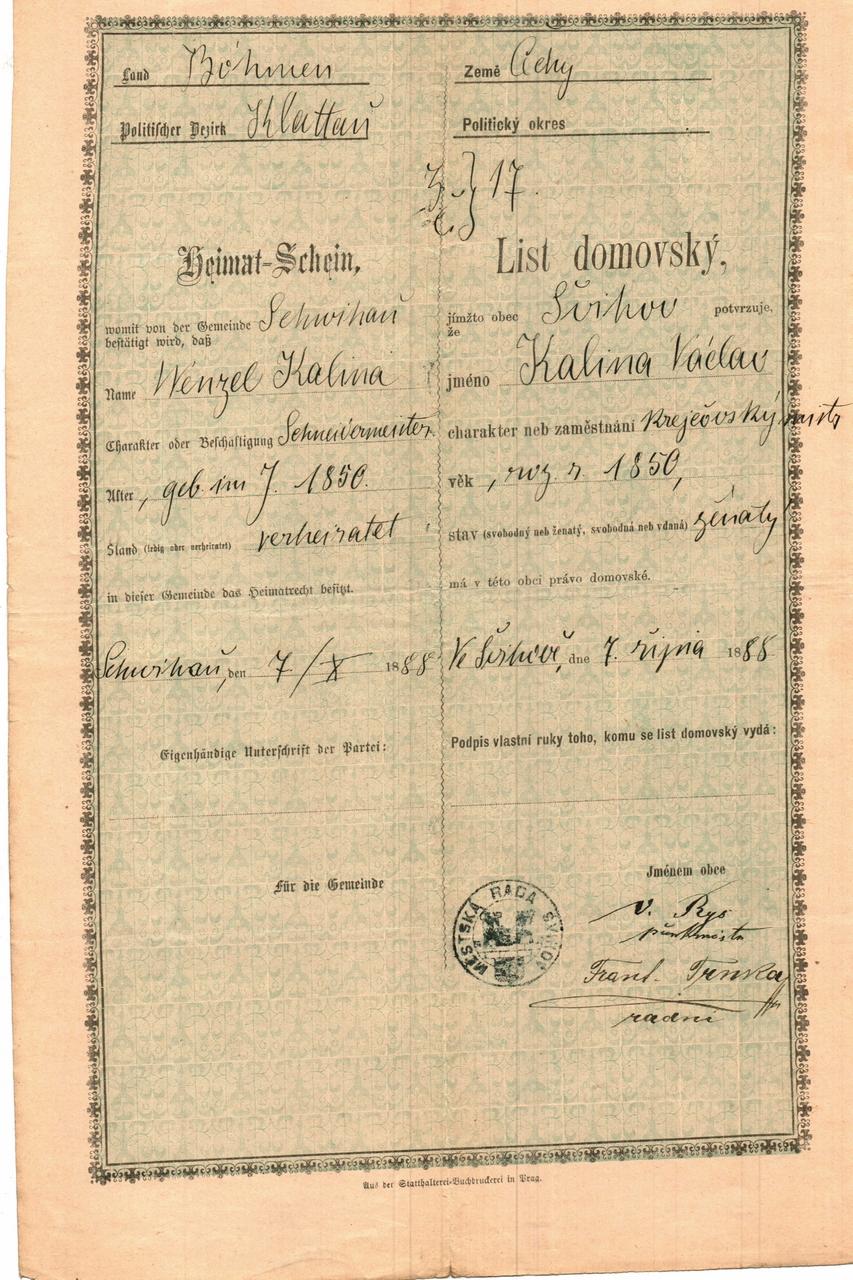 Land Böhmen
Politischer Bezirk Klattau
Země Čechy
Politický okres
17.
Heimat-Schein,
womit von der Gemeinde Schwihau
bestätigt wird, daß
Name Wenzel Kalina
Charakter oder Beschäftigung Schneidermeister
Alter, geb. im J. 1850.
Stand (ledig oder verheiratet) verheiratet
in dieser Gemeinde das Heimatrecht besitzt.
Schwihau, den 7/X 1888
Eigenhändige Unterschrift der Partei:
Für die Gemeinde
List domovský,
jímžto obec Švihov potvrzuje,
že
jméno Kalina Václav
charakter neb zaměstnání krejčovský mistr
věk, roz. r. 1850,
stav (svobodný neb ženatý, svobodná neb vdaná) ženatý
má v této obci právo domovské.
Ve Švihově, dne 7. října 1888
Podpis vlastní ruky toho, komu se list domovský vydá:
Jménem obce
MĚSTSKÁ RADA ŠVIHOV
V. Rys
purkmistr
Frant. Trnka
radní
Aus der Statthalterei-Buchdruckerei in Prag.